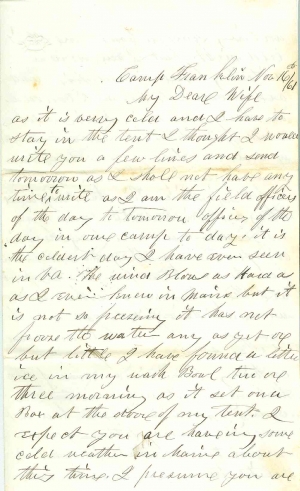 Camp Franklin Nov 16/61
My Deare Wife
as it is verry cold and I have to
stay in the tent I thought I would
write you a few lines and send
tomorrow as I shall not have any
time to write as I am the field officer
of the day to tomorrow officer of the
day in our camp to day. it is
the coldest day I have ever seen
in Va. the wind Blows as Hard as
as I ever knew in Maine but it
is not so freezing it has not
froze the water any as yet or
but little I have found a little
ice in my wash Bowl two or
three morning as it set on a
Box at the dore of my tent. I
expect you are haveing some
cold weather in Maine about
this time. I presume you are